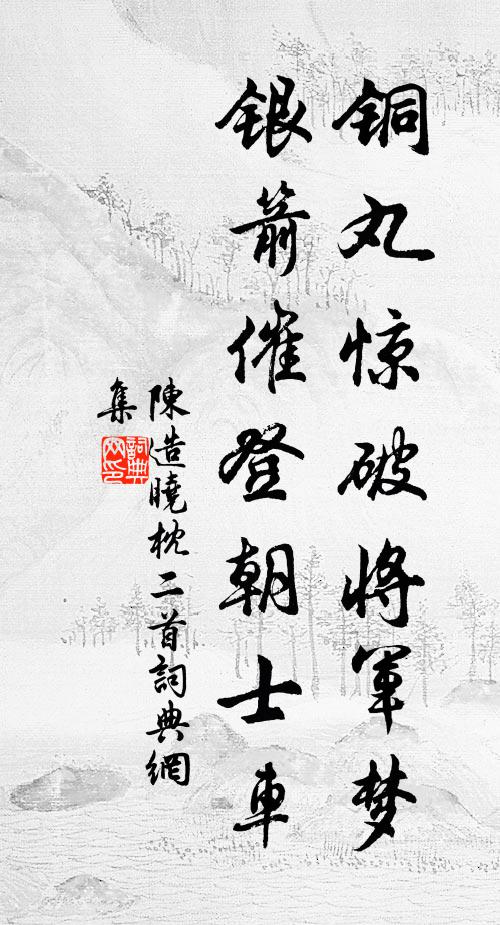 铜丸惊破将军梦
银箭催登朝士车
陳造曉枕二首詞典網
集